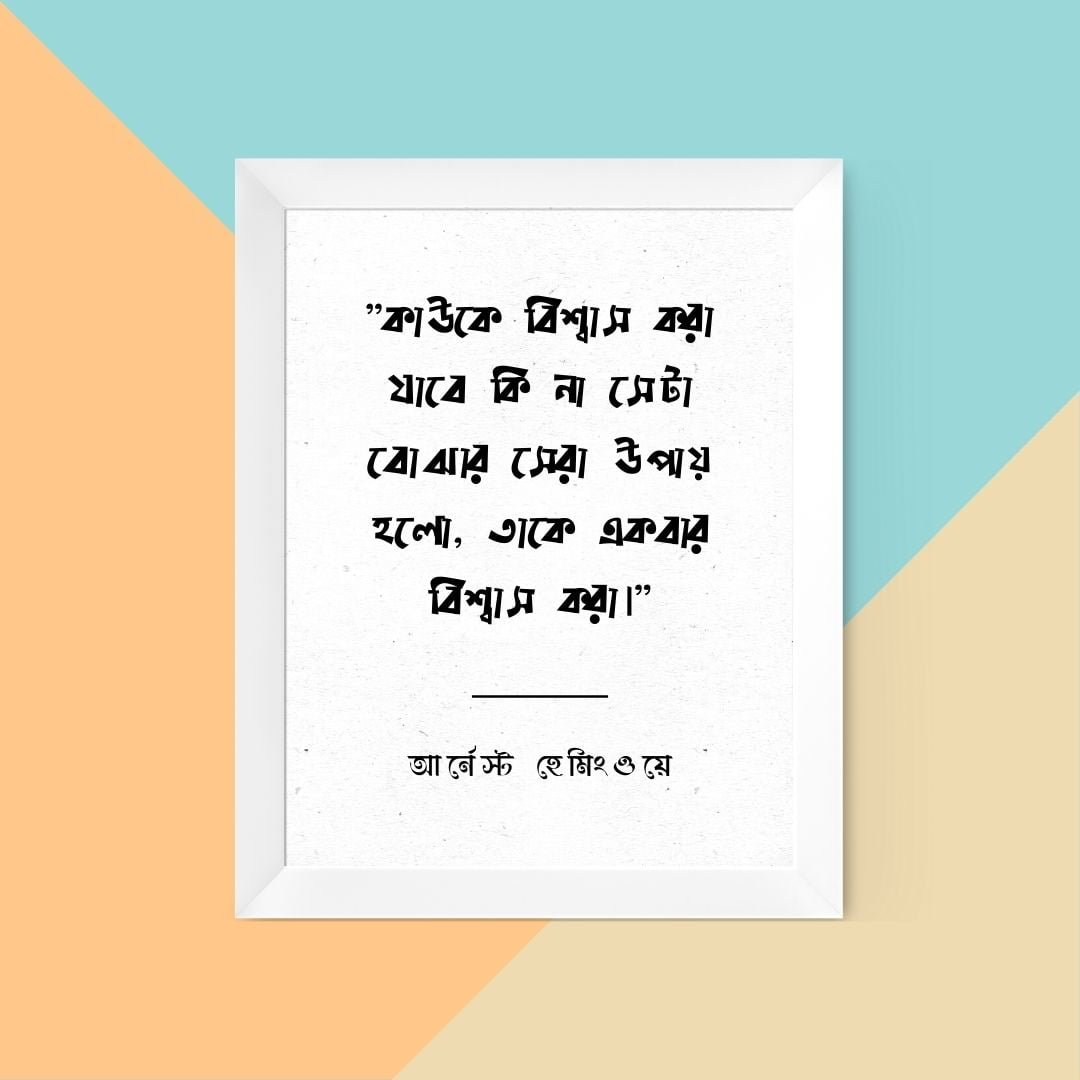 ”কাউকে বিশ্বাস করা
যাবে কি না সেটা
বোঝার সেরা উপায়
হলো, তাকে একবার
বিশ্বাস করা।”
আর্নেস্ট হেমিংওয়ে